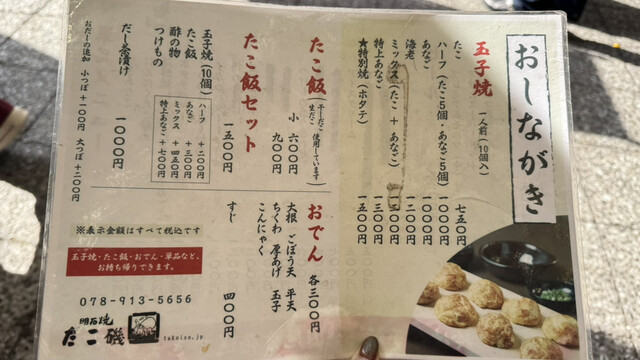 おしながき
玉子焼 一人前(10個入)
たこ 七五〇円
ハーフ(たこ5個・あなご5個) 一〇〇〇円
あなご 一〇〇〇円
海老 一二〇〇円
ミックス(たこ + あなご)
特上あなご 一三〇〇円
★特別焼(ホタテ) 一五〇〇円
たこ飯(干しだこ 生だこ 使用しています)
小 六〇〇円
九〇〇円
たこ飯セット 一五〇〇円
玉子焼(10個)
たこ飯
酢の物
つけもの
ハーフ +二〇〇円
あなご +三〇〇円
ミックス +四五〇円
特上あなご +七〇〇円
だし茶漬け 一〇〇〇円
おだしの追加 小つぼ+一〇〇円 大つぼ+二〇〇円
おでん 各三〇〇円
大根 ごぼう天 平天
ちくわ 厚あげ 玉子
こんにゃく
すじ 四〇〇円
※表示金額はすべて税込です
玉子焼・たこ飯・おでん・単品など、
お持ち帰りできます。
078-913-5656
明石焼
たこ磯
takoiso.jp